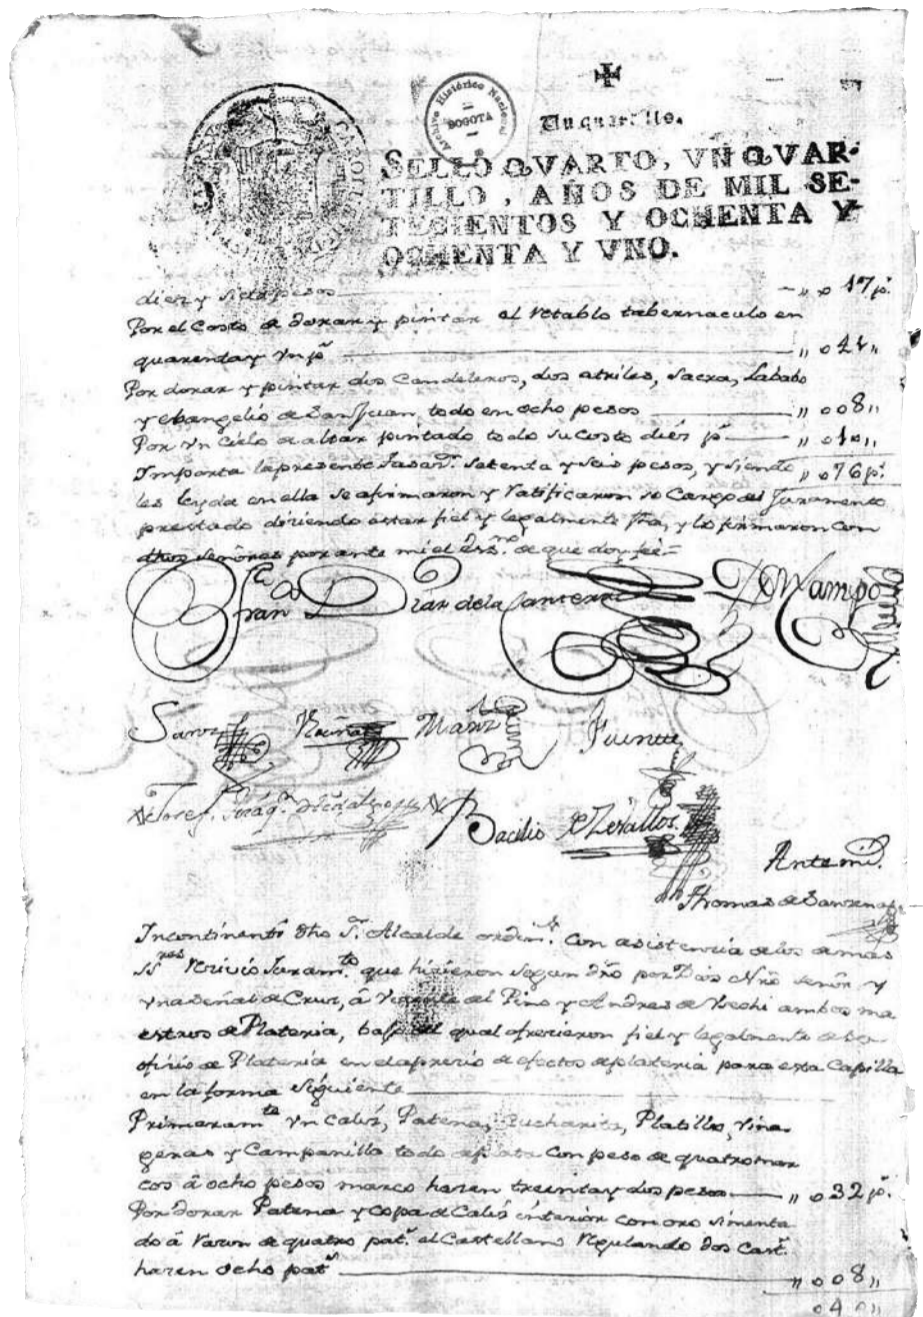 Archivo Histórico Nacional
BOGOTA
Un quartillo.
SELLO QVARTO, VN QVAR-
TILLO, AÑOS DE MIL SE-
TECIENTOS Y OCHENTA Y
OCHENTA Y VNO.
diez y siete pesos — ,, 017 p.
Por el costo de dorar y pintar el retablo tabernaculo en
quarenda y un p.s — ,, 041,,
Por dorar y pintar dos Candeleros, dos atriles, Sacra, Lababo
y ebangelio de San Juan, todo en ocho pesos — ,, 008,,
Por vn Cielo de altar pintado todo su costo diés p.s — ,, 010,,
Importa la presente tasaz.n setenta y seis pesos, y siendo ,, 076 p.s
les leyda en ella se afirmaron y ratificaron so Cargo del Juramento
prestado diciendo estar fiel y legalmente fha, y lo firmaron con
dhos Señores por ante mi el Ess.no de que doy feé =
Fran.co Diaz de la
Campo
Sanz
Manz
Fuente
Josef
Bacilio Zevallos
Ante mi.
Thomas de
Incontinenti dho S.r Alcalde orden.o Con asistencia de los demas
SS.res Recivió Juram.to que hicieron segun dro por Dios Nrô Señor y
vna señal de Cruz, â Vicente del Pino y Andres de ambos ma
estros de Plateria, bajo del qual ofrecieron fiel y legalmente
oficio de Plateria en el aprecio de efectos de plateria para esta Capilla
en la forma siguiente
Primeram.te vn Caliz, Patena, Cucharita, Platillo, Vina
geras y Campanilla todo de plata con peso de quatro mar
cos â ocho pesos marco hacen treinta y dos pesos — ,, 032 p.s
Por dorar Patena y copa de Caliz interior con oro
do â razon de quatro pat.s el Castellano Regulando dos Cast.s
hacen ocho pat.s — ,, 008,,